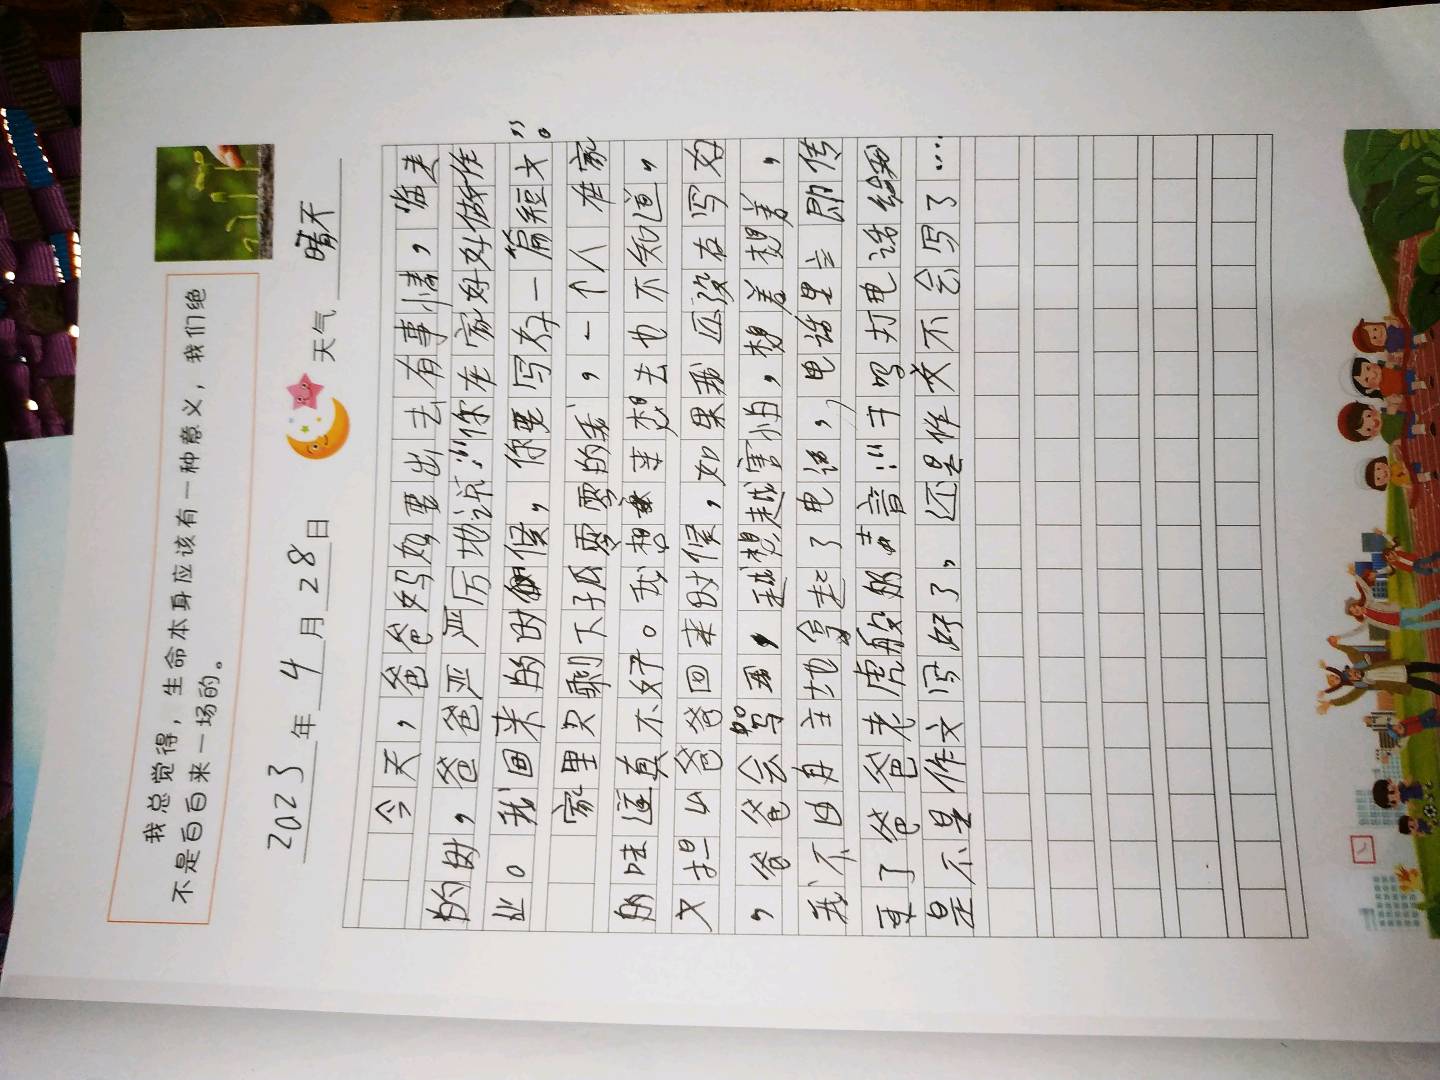 我总觉得，生命本身应该有一种意义，我们绝
不是白白来一场的。
2023年4月28日 天气 晴天
今天，爸爸妈妈要出去有事情，临走
的时，爸爸严严厉地说：“你在家好好做作
业。我回来的时候，你要写好一篇短文”。
家里只剩下孤零零的我，一个人在家
的味道真不好。我想来想去也不知道，
又担心爸爸回来时候，如果我还没在写好
，爸爸会骂我，我越想越害怕，想着想着，
我不由自主地拿起了电话，电话里立即传
来了爸爸老虎般的声音：“干吗打电话给我
是不是作文写好了，还是作文不会写了…